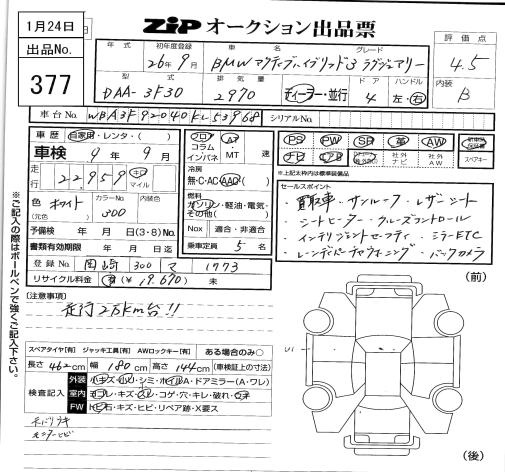 1月24日
ZIP オークション出品票
出品No.
377
年式 初年度登録 車名 グレード
26年9月 BMW アクティブハイブリッド3 ラグジュアリー
評価点
4.5
型式 排気量 ドア ハンドル
DAA-3F30 2970 ディーラー・並行 4 左・右
内装
B
車台No. WBA3F92040KL53968 シリアルNo.
車歴 自家用・レンタ・( )
車検 9年9月
走行 22,959 キロ マイル
燃色 ホワイト (元色) カラーNo 300 内装色
予備検 年 月 日(3・8)No.
書類有効期限 年 月 日
登録No. 岡崎 300 マ 1773
リサイクル料金 済(¥19,690) 未
フロア コラム インパネ AT・MT 速
冷房 無・C・AC・AAC( )
燃料 ガソリン・軽油・電気・その他( )
Nox 適合・非適合
乗車定員 5名
PS PW SR 革 AW 新車時保証書
ナビ エアB 社外ナビ 社外AW スペアキー
※上記太枠内は標準装備品
セールスポイント
・買取車・サンルーフ・レザーシート
・シートヒーター・クルーズコントロール
・インテリジェントセーフティ・ミラーETC
・レーンディパーチャウォーニング・バックカメラ
※ご記入の際はボールペンで強くご記入下さい。
[注意事項]
走行2万km台!!
(前)
U1
スペアタイヤ[有] ジャッキ工具[有] AWロックキー[有] ある場合のみ○
長さ462cm 幅180cm 高さ144cm (車検証上の寸法)
検査記入
外装 小キズ・小凹・シミ・ホイルA・ドアミラー(A・ワレ)
室内 ヨゴレ・キズ・スレ・コゲ・穴・キレ・破れ・ウキ
FW トビ石・キズ・ヒビ・リペア跡・X要ス
(後)